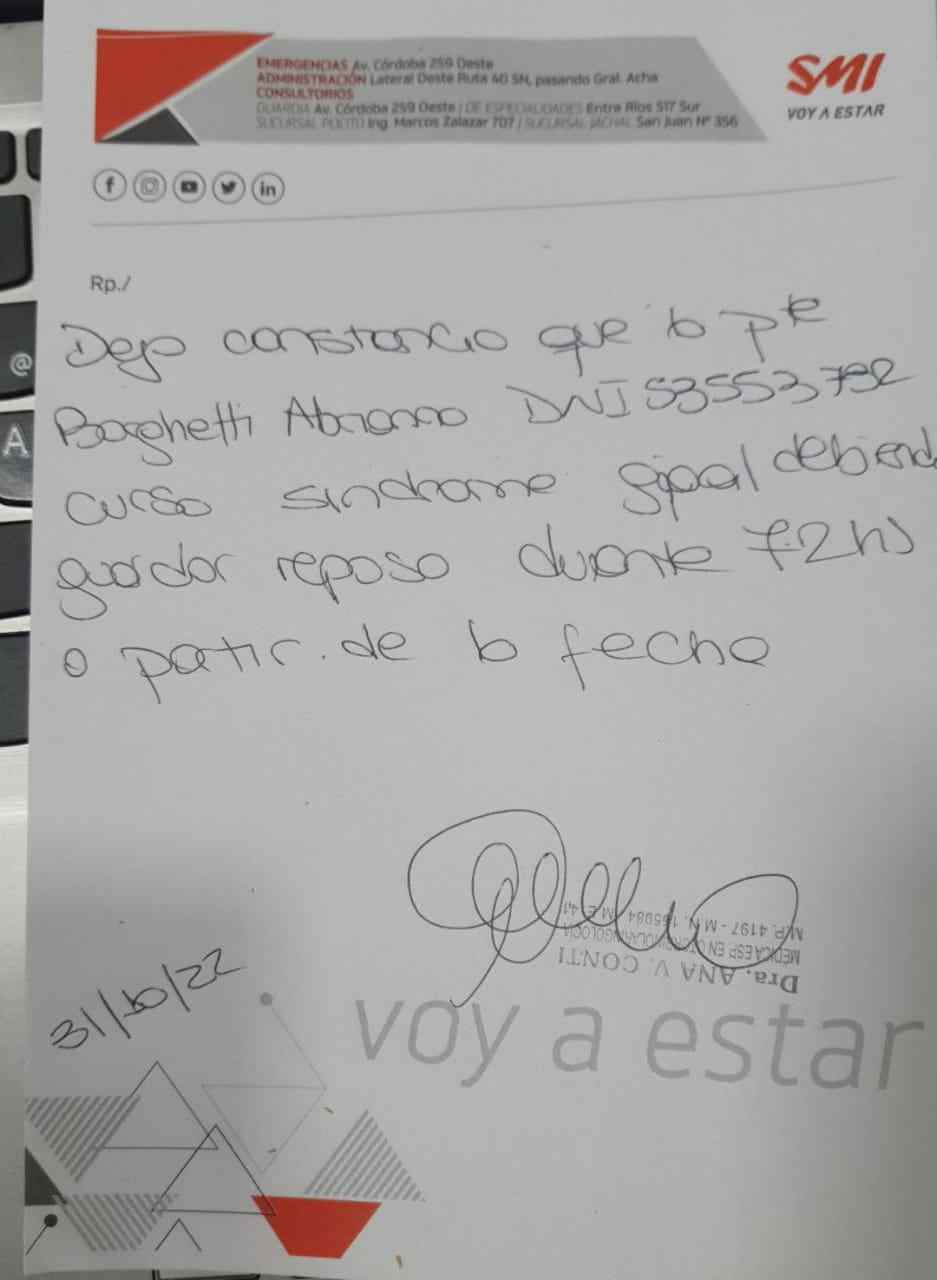 EMERGENCIAS Av. Córdoba 259 Oeste
ADMINISTRACIÓN Lateral Oeste Ruta 40 SN, pasando Gral. Acha
CONSULTORIOS
GUARDIA Av. Córdoba 259 Oeste / DE ESPECIALIDADES Entre Ríos 517 Sur
SUCURSAL POCITO Ing. Marcos Zalazar 707 / SUCURSAL JACHAL San Juan N° 356
SMI
VOY A ESTAR
Rp./
Dejo constancia que la pte
Borghetti DNI 53553792
curso sindrome gripal debiendo
guardar reposo durante 72hs
a partir de la fecha
Dra. ANA V. CONTI
MEDICA ESP. EN OTORRINOLARINGOLOGIA
M.P. 4197 - M.N. 165984
31/10/22
voy a estar